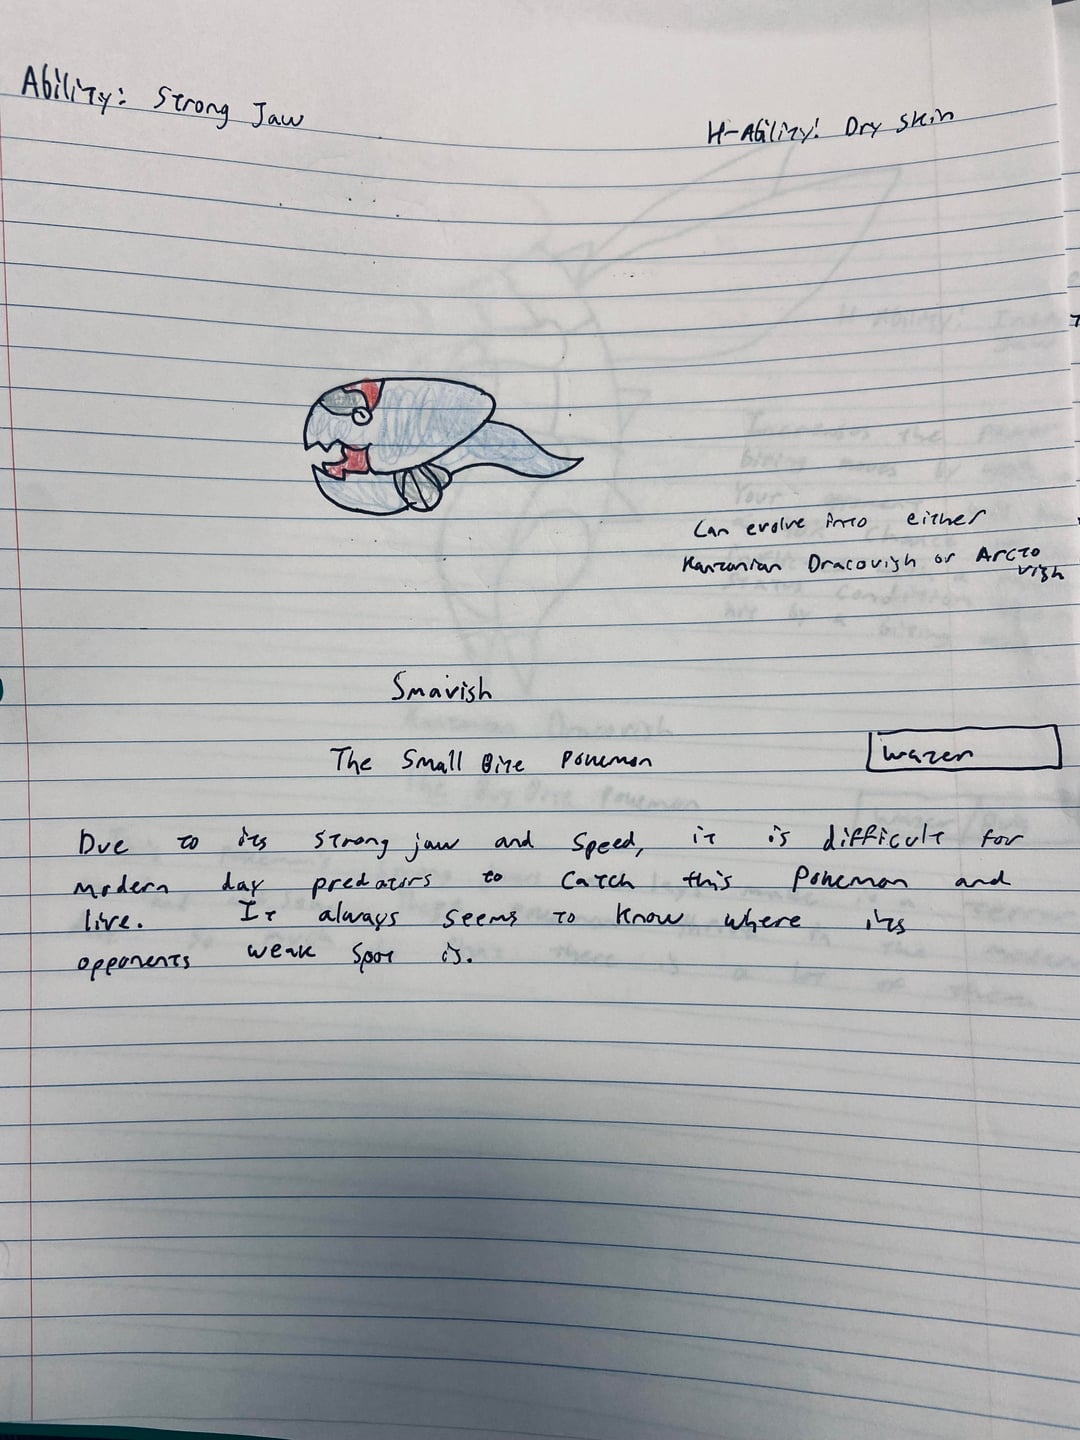 Ability: Strong Jaw
H-Ability: Dry Skin
Can evolve into either
Kantonian Dracovish or Arcto
vish
Smavish
The Small Bite Pokemon
Water
Due to its strong jaw and speed, it is difficult for
modern day predators to catch this Pokemon and
live. It always seems to know where its
opponents weak spot is.